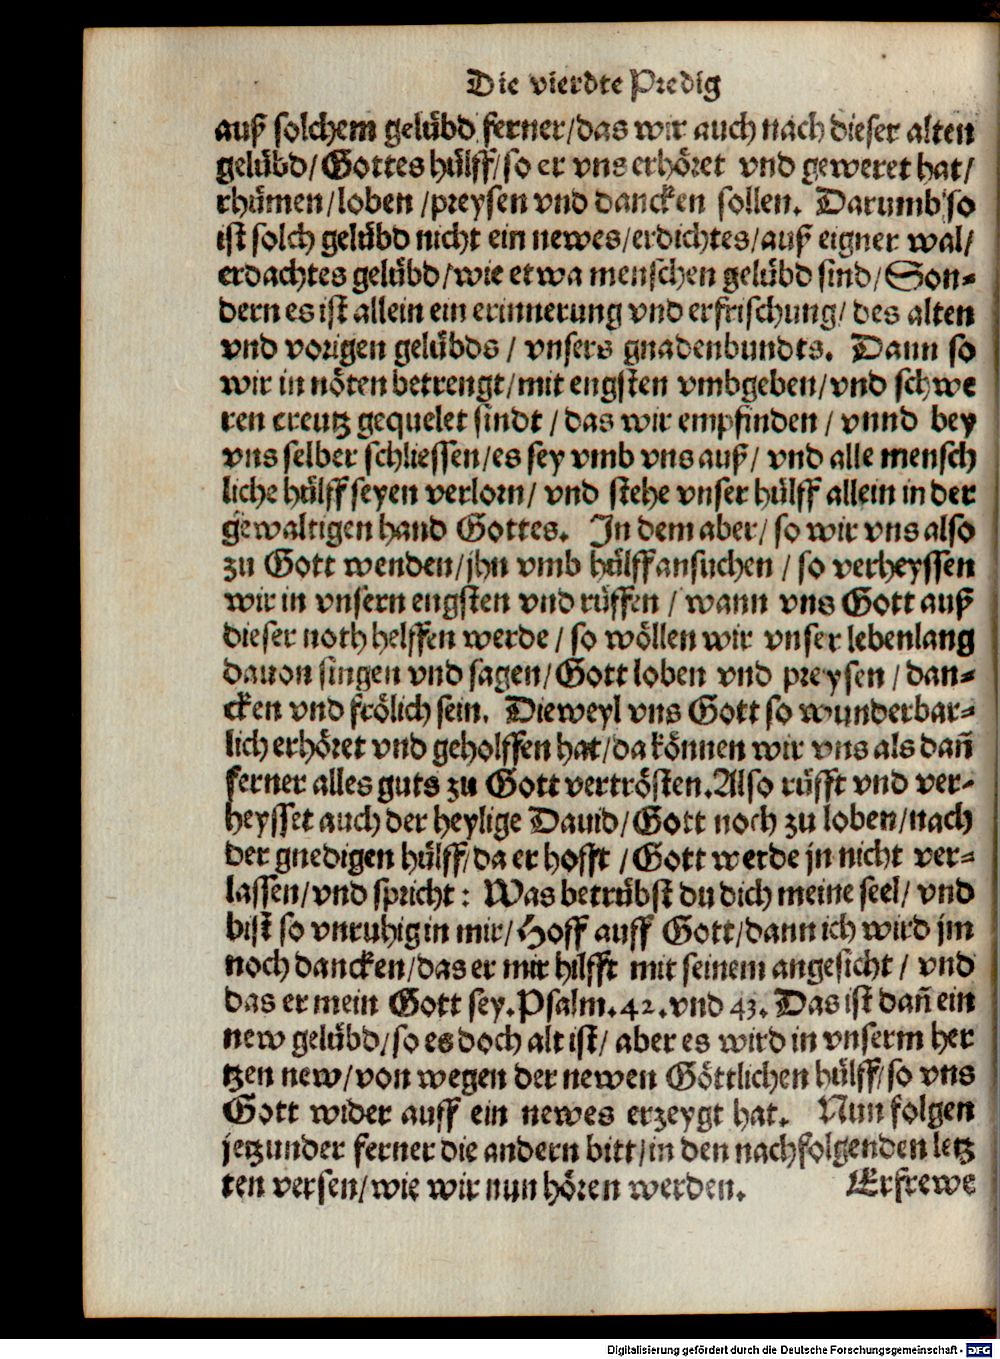 Die vierdte Predig
auß solchem gelübd ferner/das wir auch nach dieser alten
gelübd/Gottes hülff/so er vns erhöret vnd geweret hat/
rhümen/loben/preysen vnd dancken sollen. Darumb so
ist solch gelübd nicht ein newes/erdichtes/auß eigner wal/
erdachtes gelübd/wie etwa menschen gelübd sind/Son=
dern es ist allein ein erinnerung vnd erfrischung/des alten
vnd vorigen gelübds/vnsers gnadenbundts. Dann so
wir in nöten betrengt/mit engsten vmbgeben/vnd schwe
ren creutz gequelet sindt/das wir empfinden/vnnd bey
vns selber schliessen/es sey vmb vns auß/vnd alle mensch
liche hülff seyen verlorn/vnd stehe vnser hülff allein in der
gewaltigen hand Gottes. In dem aber/so wir vns also
zu Gott wenden/jhn vmb hülff ansuchen/so verheyssen
wir in vnsern engsten vnd rüffen/wann vns Gott auß
dieser noth helffen werde/so wöllen wir vnser lebenlang
dauon singen vnd sagen/Gott loben vnd preysen/dan=
cken vnd frölich sein. Dieweyl vns Gott so wunderbar=
lich erhöret vnd geholffen hat/da können wir vns als dañ
ferner alles guts zu Gott vertrösten. Also rüfft vnd ver=
heysset auch der heylige Dauid/Gott noch zu loben/nach
der gnedigen hülff/da er hofft/Gott werde jn nicht ver=
lassen/vnd spricht: Was betrübst du dich meine seel/vnd
bist so vnruhig in mir/Hoff auff Gott/dann ich wird jm
noch dancken/das er mir hilfft mit seinem angesicht/vnd
das er mein Gott sey. Psalm. 42. vnd 43. Das ist dañ ein
new gelübd/so es doch alt ist/aber es wird in vnserm her
tzen new/von wegen der newen Göttlichen hülff/so vns
Gott wider auff ein newes erzeygt hat. Nun folgen
jetzunder ferner die andern bitt/in den nachfolgenden letz
ten versen/wie wir nun hören werden. Erfrewe
Digitalisierung gefördert durch die Deutsche Forschungsgemeinschaft - DFG